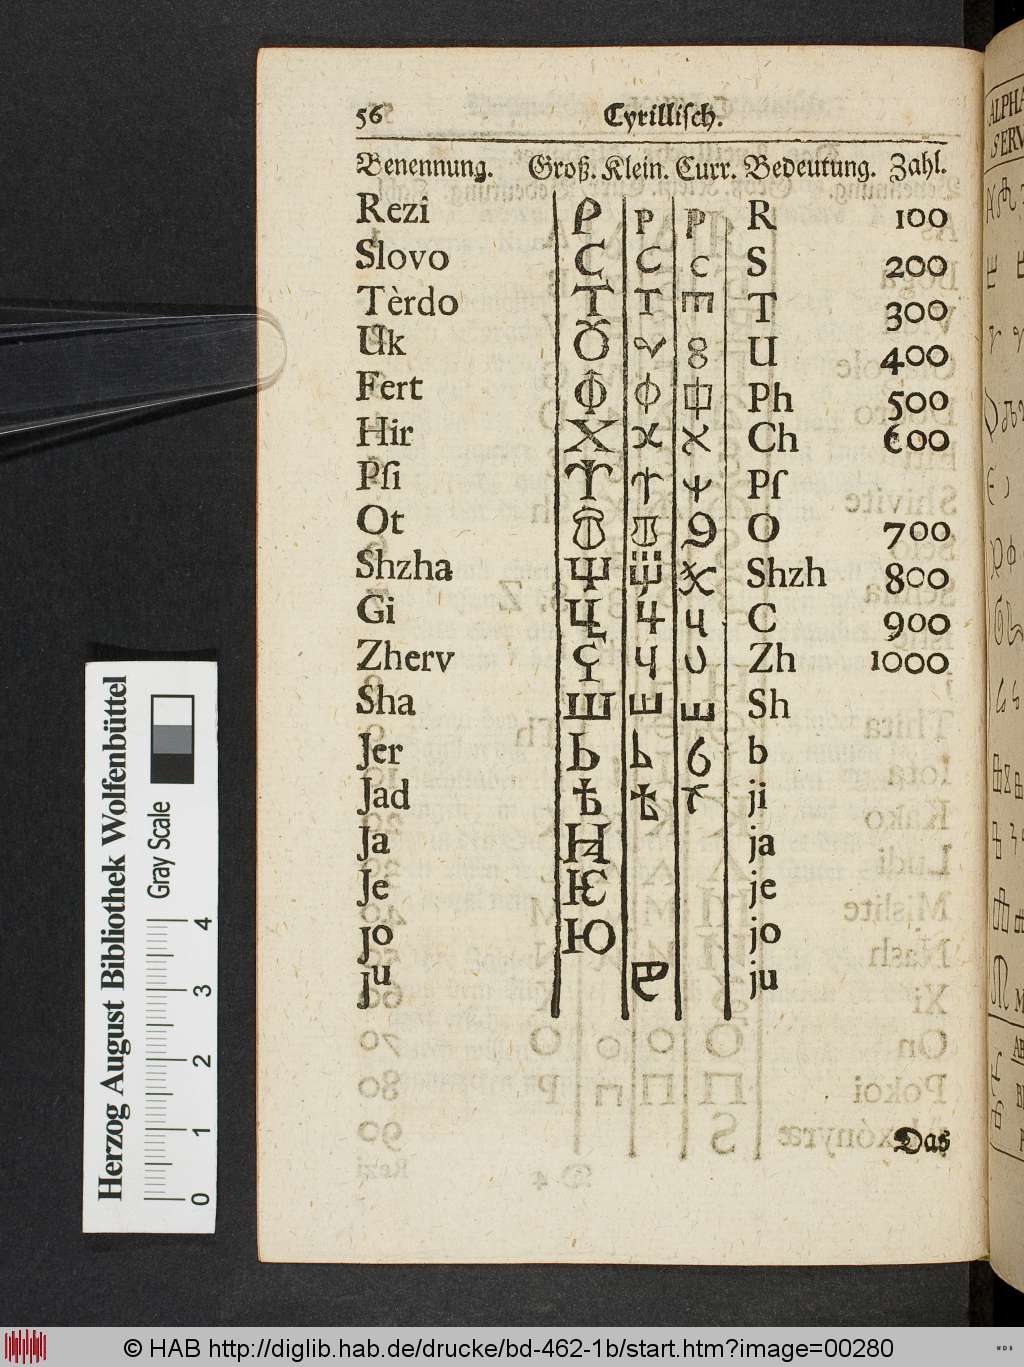 56 Cyrilliſch.
Benennung. Groß. Klein. Curr. Bedeutung. Zahl.
Rezi Р Р Р R 100
Slovo С С С S 200
Tèrdo Т Т Ш T 300
Uk U 400
Fert Ф Ф Ph 500
Hir Х Х Х Ch 600
Pſi Pſ
Ot O 700
Shzha Shzh 800
Gi C 900
Zherv Zh 1000
Sha Ш Ш Ш Sh
Jer Ь Ь b
Jad Ѣ Ѣ ji
Ja ja
Je Ѥ je
jo Ю jo
ju ju
Das
Herzog August Bibliothek Wolfenbüttel
Gray Scale
0 1 2 3 4
ALPHA
SERV
© HAB http://diglib.hab.de/drucke/bd-462-1b/start.htm?image=00280